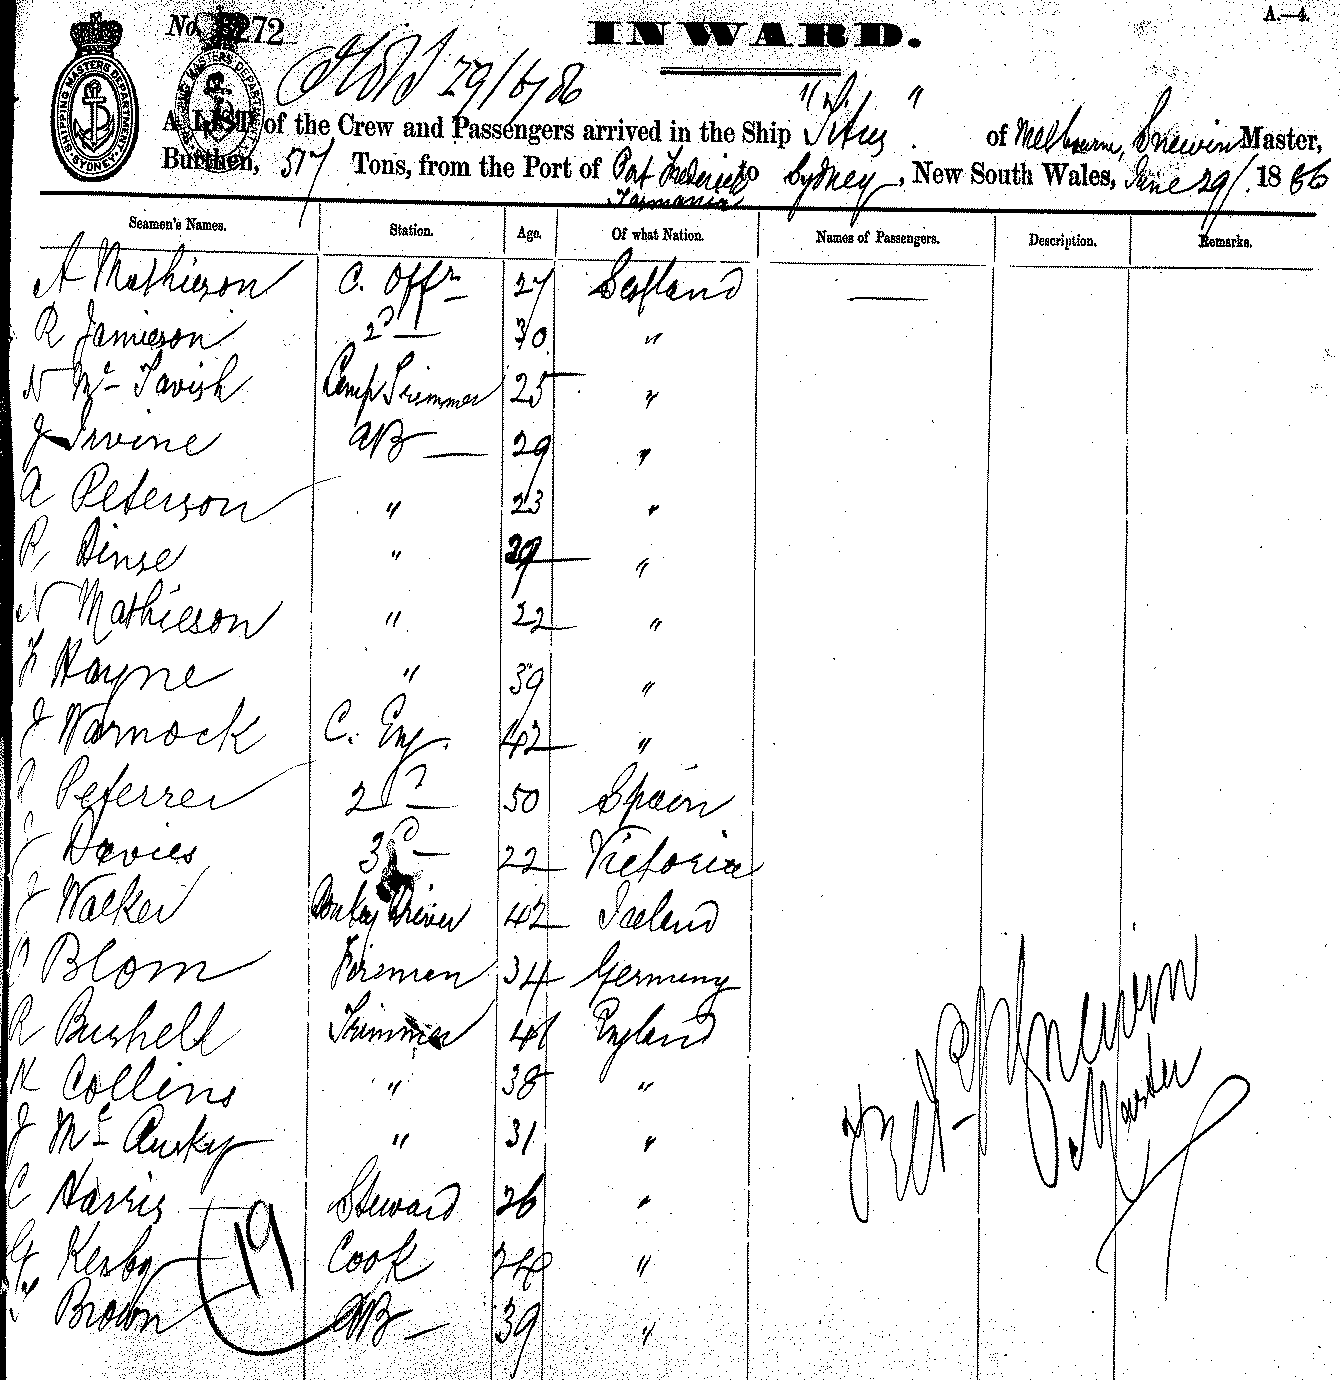 A.—4.
No. 272
INWARD.
29/6/86
SHIPPING MASTERS DEPARTMENT SYDNEY
A LIST of the Crew and Passengers arrived in the Ship " Titus " of Melbourne, Master,
Burthen, 517 Tons, from the Port of Port Frederick to Sydney, New South Wales, June 29/ 1886
Tasmania
Seamen's Names. Station. Age. Of what Nation. Names of Passengers. Description. Remarks.
A Mathieson C. Offr 27 Scotland —
R Jamieson 2d — 30 "
N Mc Tavish Lamp Trimmer 25 "
J Irvine AB — 29 "
A Peterson " 23 "
P. " 29 "
N Mathieson " 22 "
Hayne " 39 "
J Warnock C. Eng. 42 "
Peferrer 2d — 50 Spain
J Davies 3d — 22 Victoria
J Walker Donkey Driver 42 Iceland
Blom Fireman 34 Germany
R Bushell Trimmer 41 England
K Collins " 38 "
J Mc " 31 "
C Harris Steward 26 "
G Kerby Cook 24 "
Brown AB — 39 "
19
Master